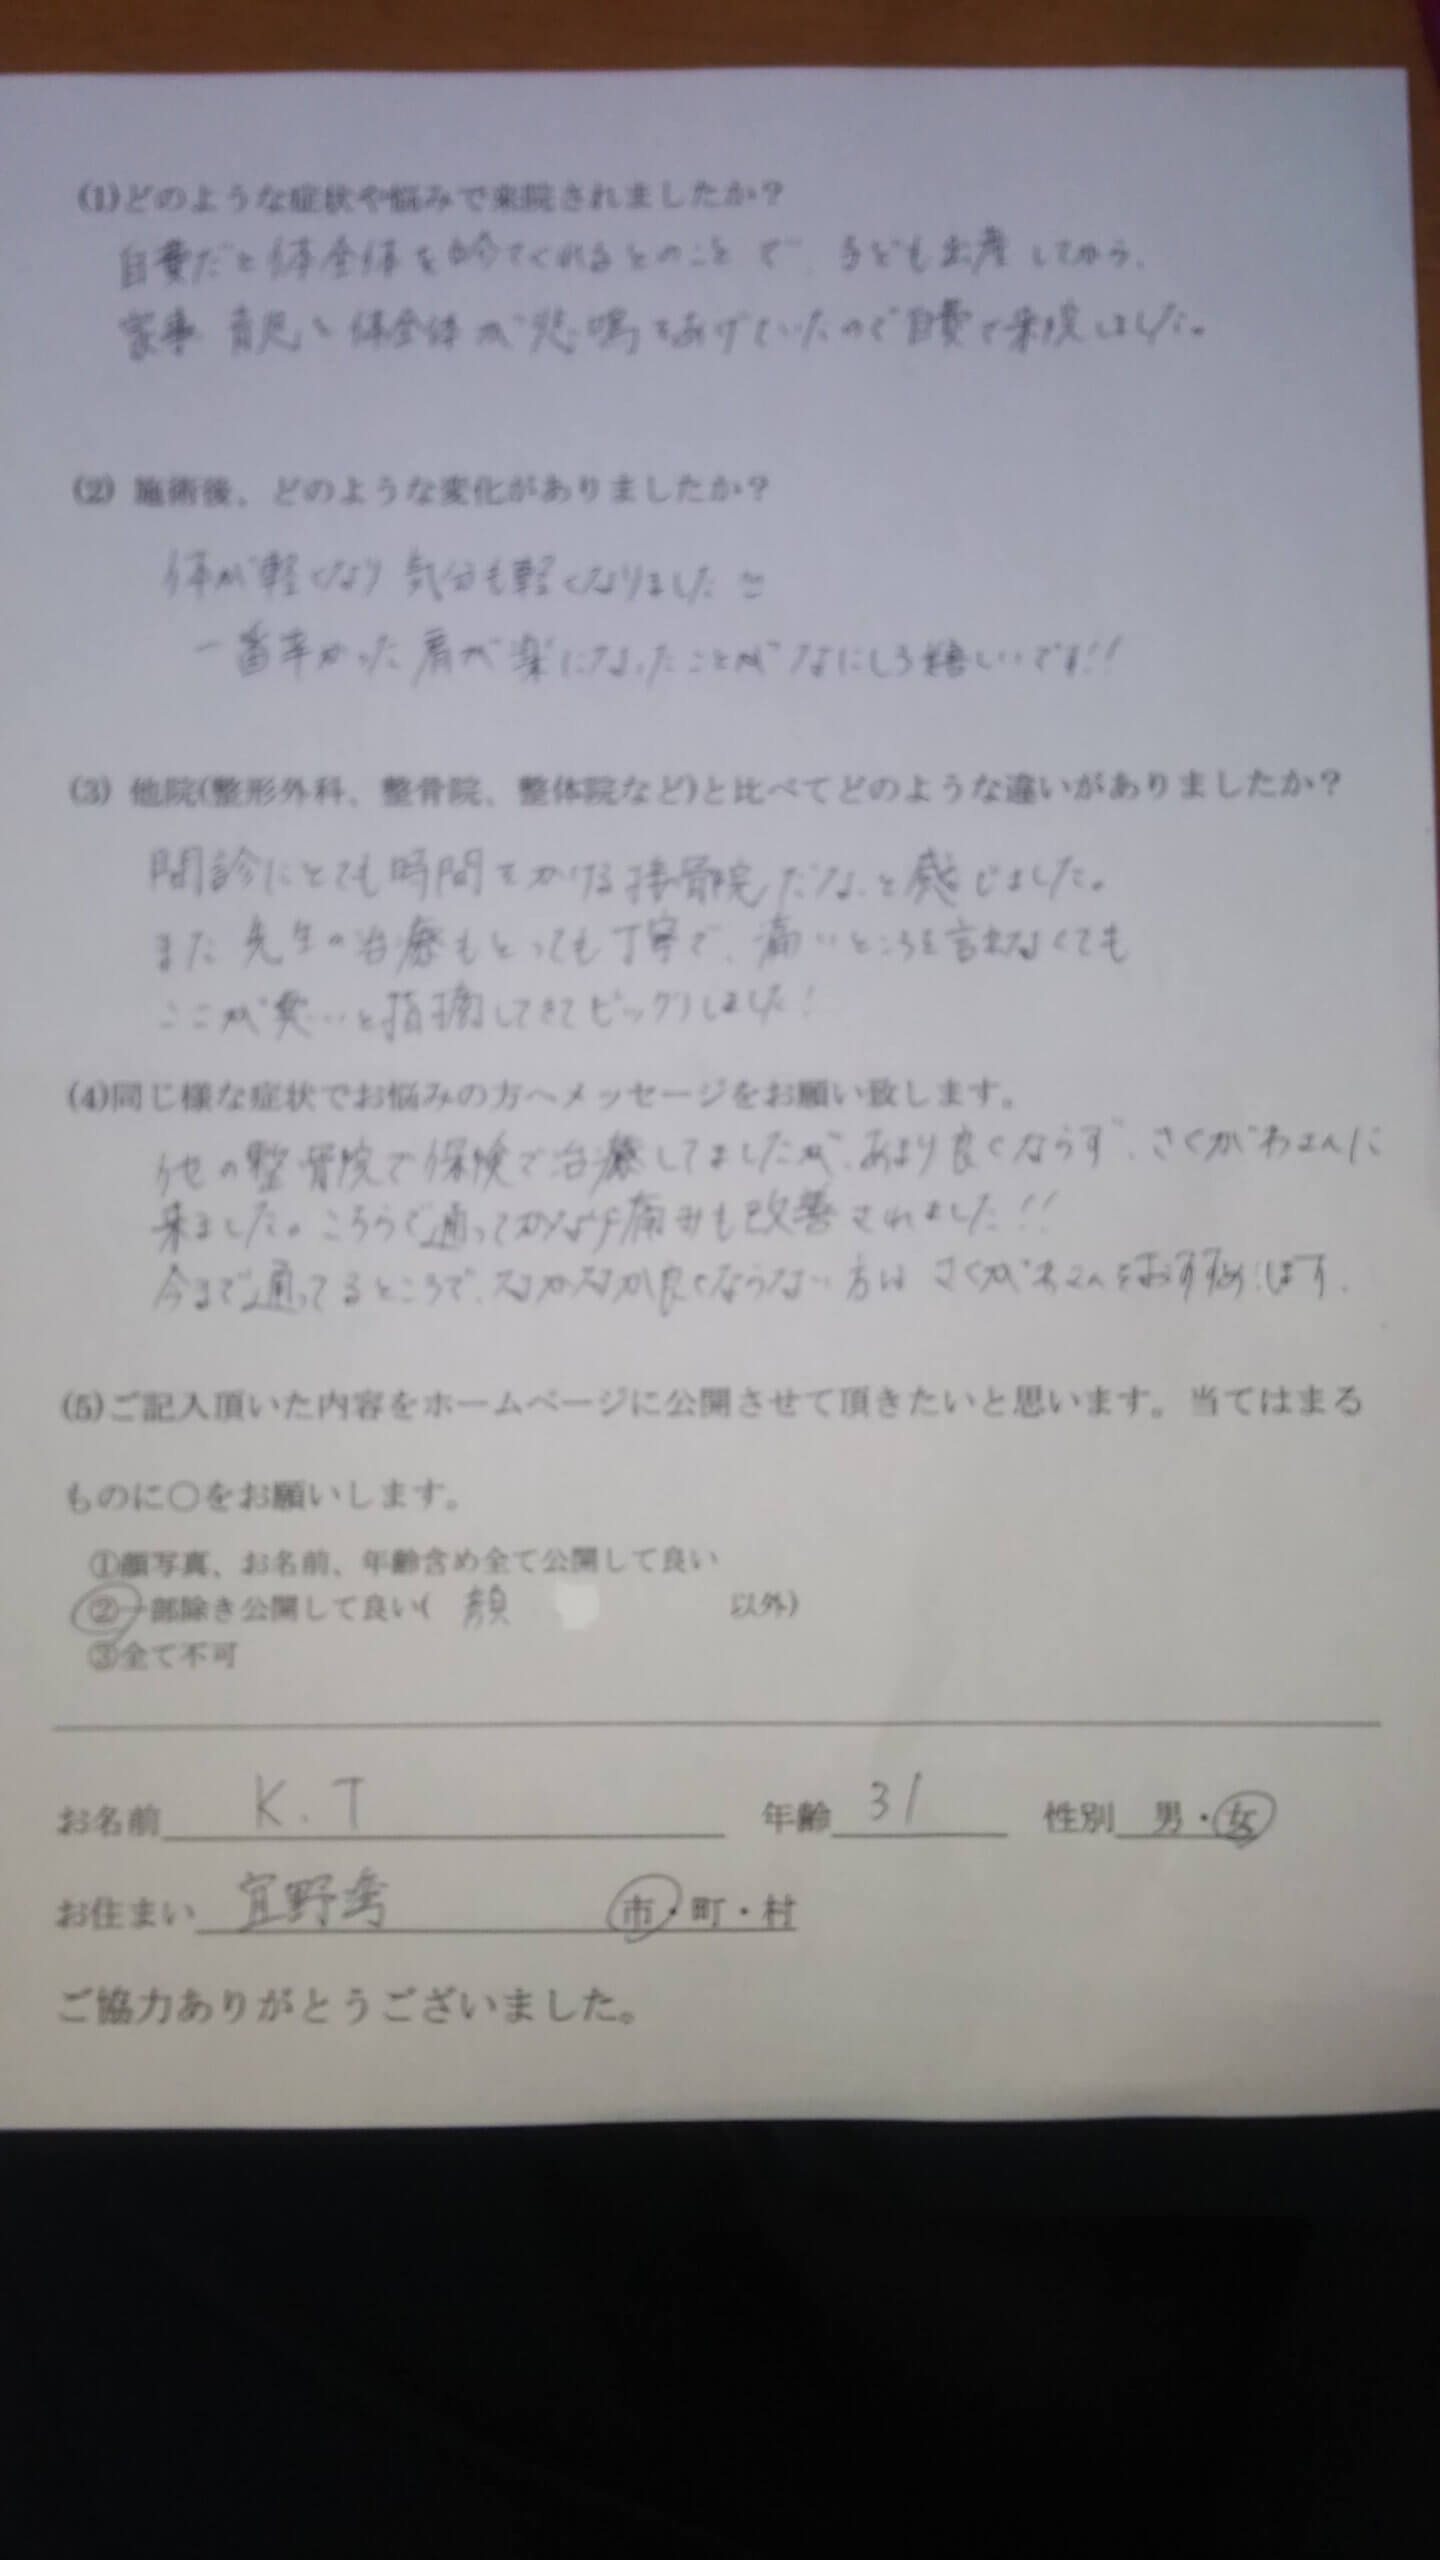 (1)どのような症状や悩みで来院されましたか？
自費だと体全体を てくれるとのことで、子ども出産してから、
家事 育児と体全体が悲鳴をあげていたので自費で来院しました。
(2) 施術後、どのような変化がありましたか？
体が軽くなり 気分も軽くなりました
一番辛かった肩が楽になったことがなにしろ嬉しいです!!
(3) 他院(整形外科、整骨院、整体院など)と比べてどのような違いがありましたか？
問診にとても時間をかける接骨院だな、と感じました。
また先生の治療もとっても丁寧で、痛いところを言わなくても
ここが悪いと指摘してきてビックリしました！
(4)同じ様な症状でお悩みの方へメッセージをお願い致します。
他の整骨院で保険で治療してましたが、あまり良くならず、さくがわさんに
来ました。こちらで通ってかなり痛みも改善されました!!
今まで通ってるところで、なかなか良くならない方は さくがわさんをおすすめします。
(5)ご記入頂いた内容をホームページに公開させて頂きたいと思います。当てはまる
ものに〇をお願いします。
①顔写真、お名前、年齢含め全て公開して良い
②一部除き公開して良い( 顔 以外)
③全て不可
お名前 K.T 年齢 31 性別 男・女
お住まい 宜野湾 市・町・村
ご協力ありがとうございました。